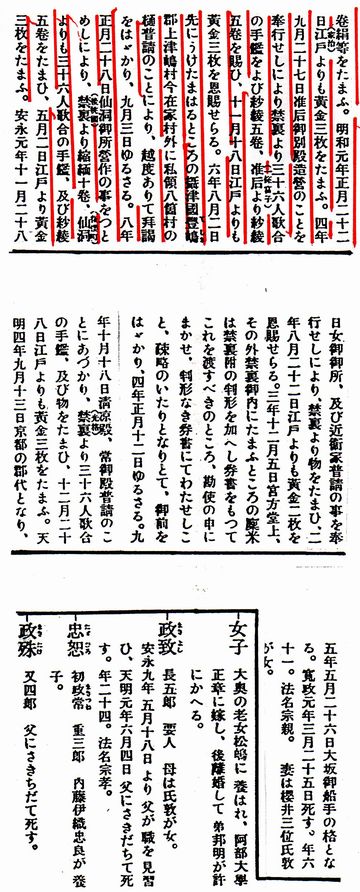 卷絹等をたまふ。明和元年正月二十二
日江戸よりも黃金三枚をたまふ。四年
九月二十七日准后御別殿造營のことを
奉行せしにより禁裏より三十六人歌合
の手鑑をよび紗綾五卷、准后より紗綾
五卷を賜ひ、十一月十八日江戸よりも
黃金三枚を恩賜せらる。六年八月二日
先にうけたまはるところの攝津國豐嶋
郡上津嶋村今在家村外に私領八箇村の
樋普請のことにより、越度ありて拜謁
をはゞかり、九月三日ゆるさる。八年
正月二十八日仙洞御所營作の事をつと
めしにより、禁裏より縮緬十卷、仙洞
よりも三十六人歌合の手鑑、及び紗綾
五卷をたまひ、五月二日江戸より黃金
三枚をたまふ。安永元年十一月二十八
日女御御所、及び近衞家普請の事を奉
行せしにより、禁裏より物をたまひ、二
年八月二十二日江戸よりも黃金二枚を
恩賜せらる。三年十二月五日宮方堂上、
その外禁裏御内にたまふところの廩米
は禁裏附の判形を加へし劵書をもつて
これを渡すべきのところ、勘使の申に
まかせ、判形なき劵書にてわたせしこ
と、疎略のいたりとなりとて、御前を
はゞかり、四年正月十二日ゆるさる。九
年十月十八日淸凉殿、常御殿普請のこ
とにあづかり、禁裏より三十六人歌合
の手鑑、及び物をたまひ、十二月二十
八日江戸よりも黃金三枚をたまふ。天
明四年九月十三日京都の郡代となり、
五年五月二十六日大坂御船手の格とな
る。寬政元年三月二十五日死す。年六
十一。法名宗親。 妻は櫻井三位氏敦
が女。
女子 大奧の老女松嶋に養はれ、阿部大學
正章に嫁し、後離婚して弟邦明が許
にかへる。
政致 長五郎 要人 母は氏敦が女。
安永九年五月十八日より父が職を見習
ひ、天明元年六月四日父にさきだちて死
す。年二十四。法名宗孝。
忠恕 初政常 重三郎 内藤伊織忠良が養
子。
政殊 又四郎 父にさきだちて死す。